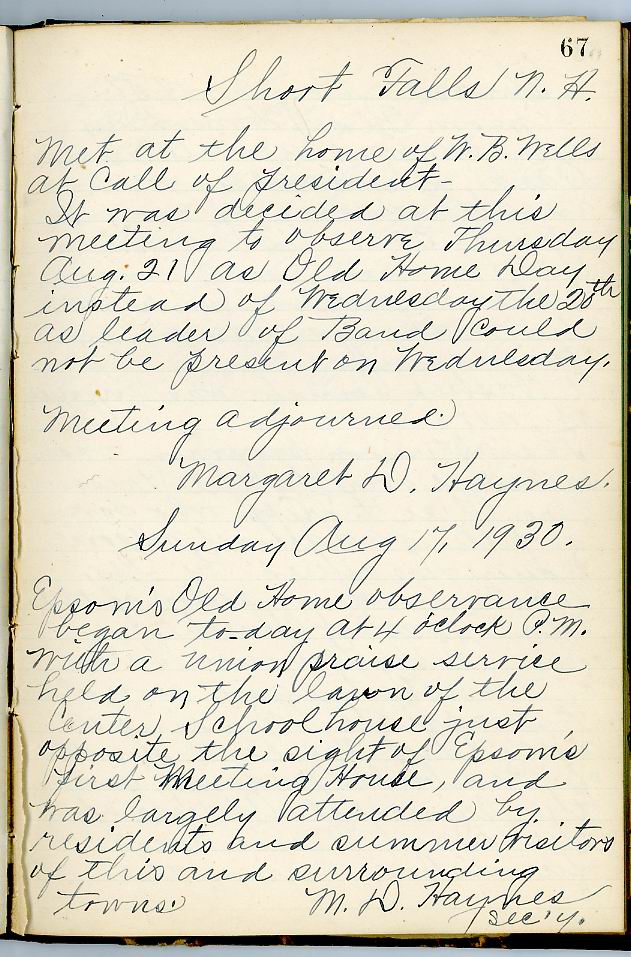 67
Short Falls N. H.
Met at the home of W. B. Wells
at call of president-
It was decided at this
meeting to observe Thursday
Aug. 21 as Old Home Day
instead of Wednesday the 20th
as leader of Band could
not be present on Wednesday.
Meeting adjourned.
Margaret D. Haynes.
Sunday Aug 17, 1930.
Epsom's Old Home observance
began to-day at 4 o'clock P.M.
with a union praise service
held on the lawn of the
Center Schoolhouse just
opposite the sight of Epsom's
first Meeting House, and
was largely attended by
residents and summer visitors
of this and surrounding
towns.
M. D. Haynes
Sec'y.